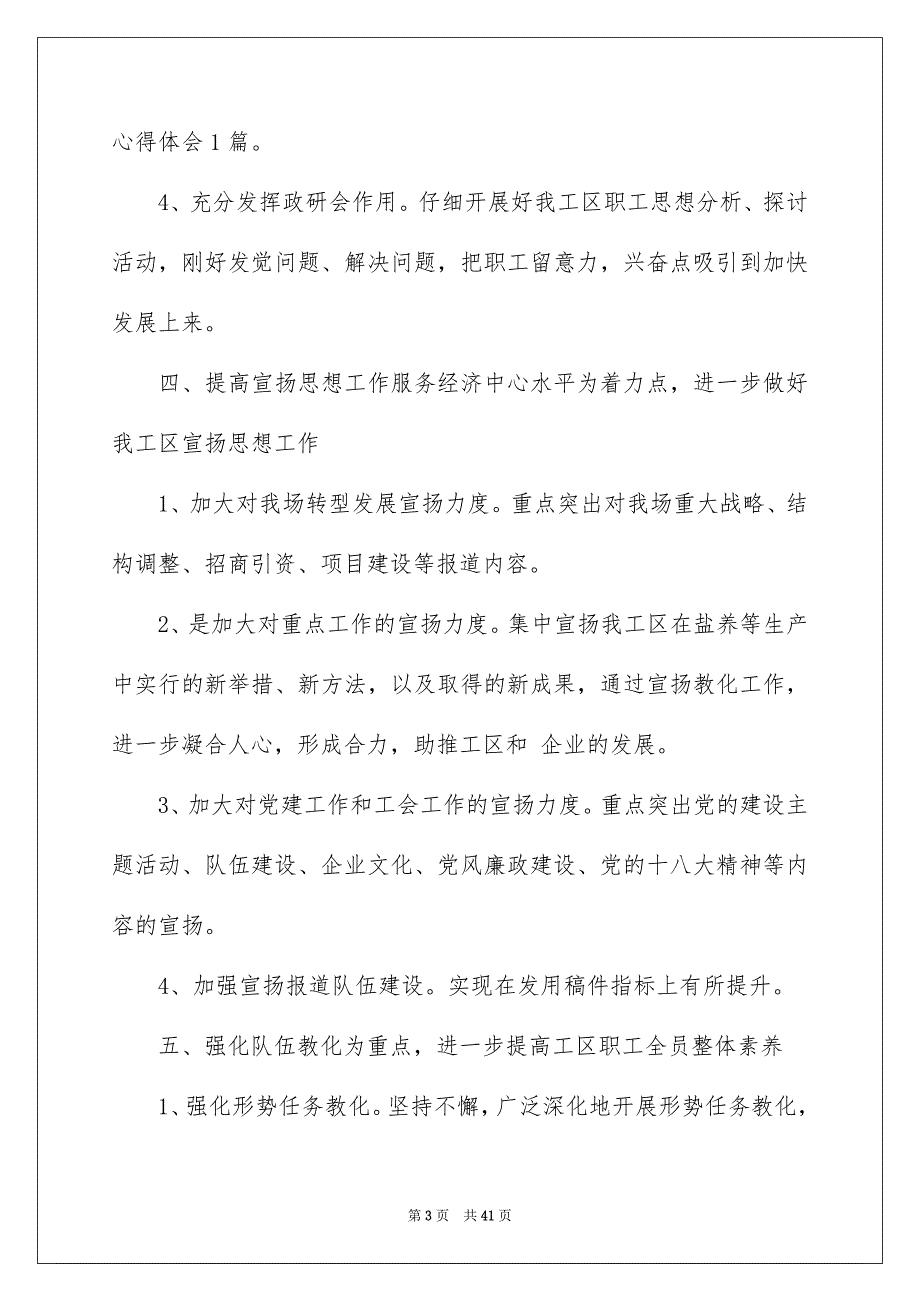 心得体会1篇。
4、充分发挥政研会作用。仔细开展好我工区职工思想分析、探讨
活动，刚好发觉问题、解决问题，把职工留意力，兴奋点吸引到加快
发展上来。
四、提高宣扬思想工作服务经济中心水平为着力点，进一步做好
我工区宣扬思想工作
1、加大对我场转型发展宣扬力度。重点突出对我场重大战略、结
构调整、招商引资、项目建设等报道内容。
2、是加大对重点工作的宣扬力度。集中宣扬我工区在盐养等生产
中实行的新举措、新方法，以及取得的新成果，通过宣扬教化工作，
进一步凝合人心，形成合力，助推工区和 企业的发展。
3、加大对党建工作和工会工作的宣扬力度。重点突出党的建设主
题活动、队伍建设、企业文化、党风廉政建设、党的十八大精神等内
容的宣扬。
4、加强宣扬报道队伍建设。实现在发用稿件指标上有所提升。
五、强化队伍教化为重点，进一步提高工区职工全员整体素养
1、强化形势任务教化。坚持不懈，广泛深化地开展形势任务教化，
第 3 页 共 41 页